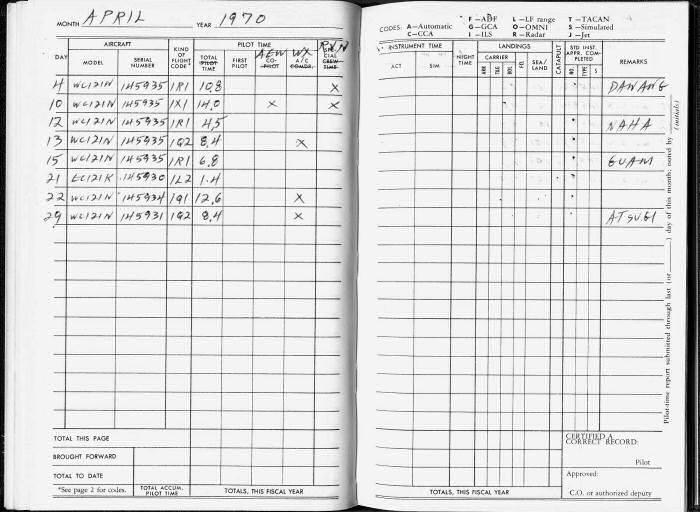 MONTH APRIL YEAR 1970
DAY AIRCRAFT KIND OF FLIGHT CODE* PILOT TIME
MODEL SERIAL NUMBER TOTAL PILOT TIME FIRST PILOT CO-PILOT AEW A/C COMDR. WX SPECIAL CREW TIME RVN
4 WC121N 145935 1R1 10.8 X
10 WC121N 145935 1X1 14.0 X X
12 WC121N 145935 1R1 4.5
13 WC121N 145935 1Q2 8.4 X
15 WC121N 145935 1R1 6.8
21 EC121K 145930 1L2 1.4
22 WC121N 145934 1Q1 12.6 X
29 WC121N 145931 1Q2 8.4 X
TOTAL THIS PAGE
BROUGHT FORWARD
TOTAL TO DATE
*See page 2 for codes. TOTAL ACCUM. PILOT TIME TOTALS, THIS FISCAL YEAR
CODES: A—Automatic F—ADF L—LF range T—TACAN
G—GCA O—OMNI S—Simulated
C—CCA I—ILS R—Radar J—Jet
INSTRUMENT TIME NIGHT TIME LANDINGS CATAPULT STD INST. APPR. COMPLETED REMARKS
ACT SIM CARRIER FLD. SEA/LAND NO. TYPE S
ARR T&G BOL
DANANG
NAHA
GUAM
ATSUGI
TOTALS, THIS FISCAL YEAR
CERTIFIED A CORRECT RECORD:
Pilot
Approved:
C.O. or authorized deputy
Pilot-time report submitted through last (or ____) day of this month; noted by ____ (initials)